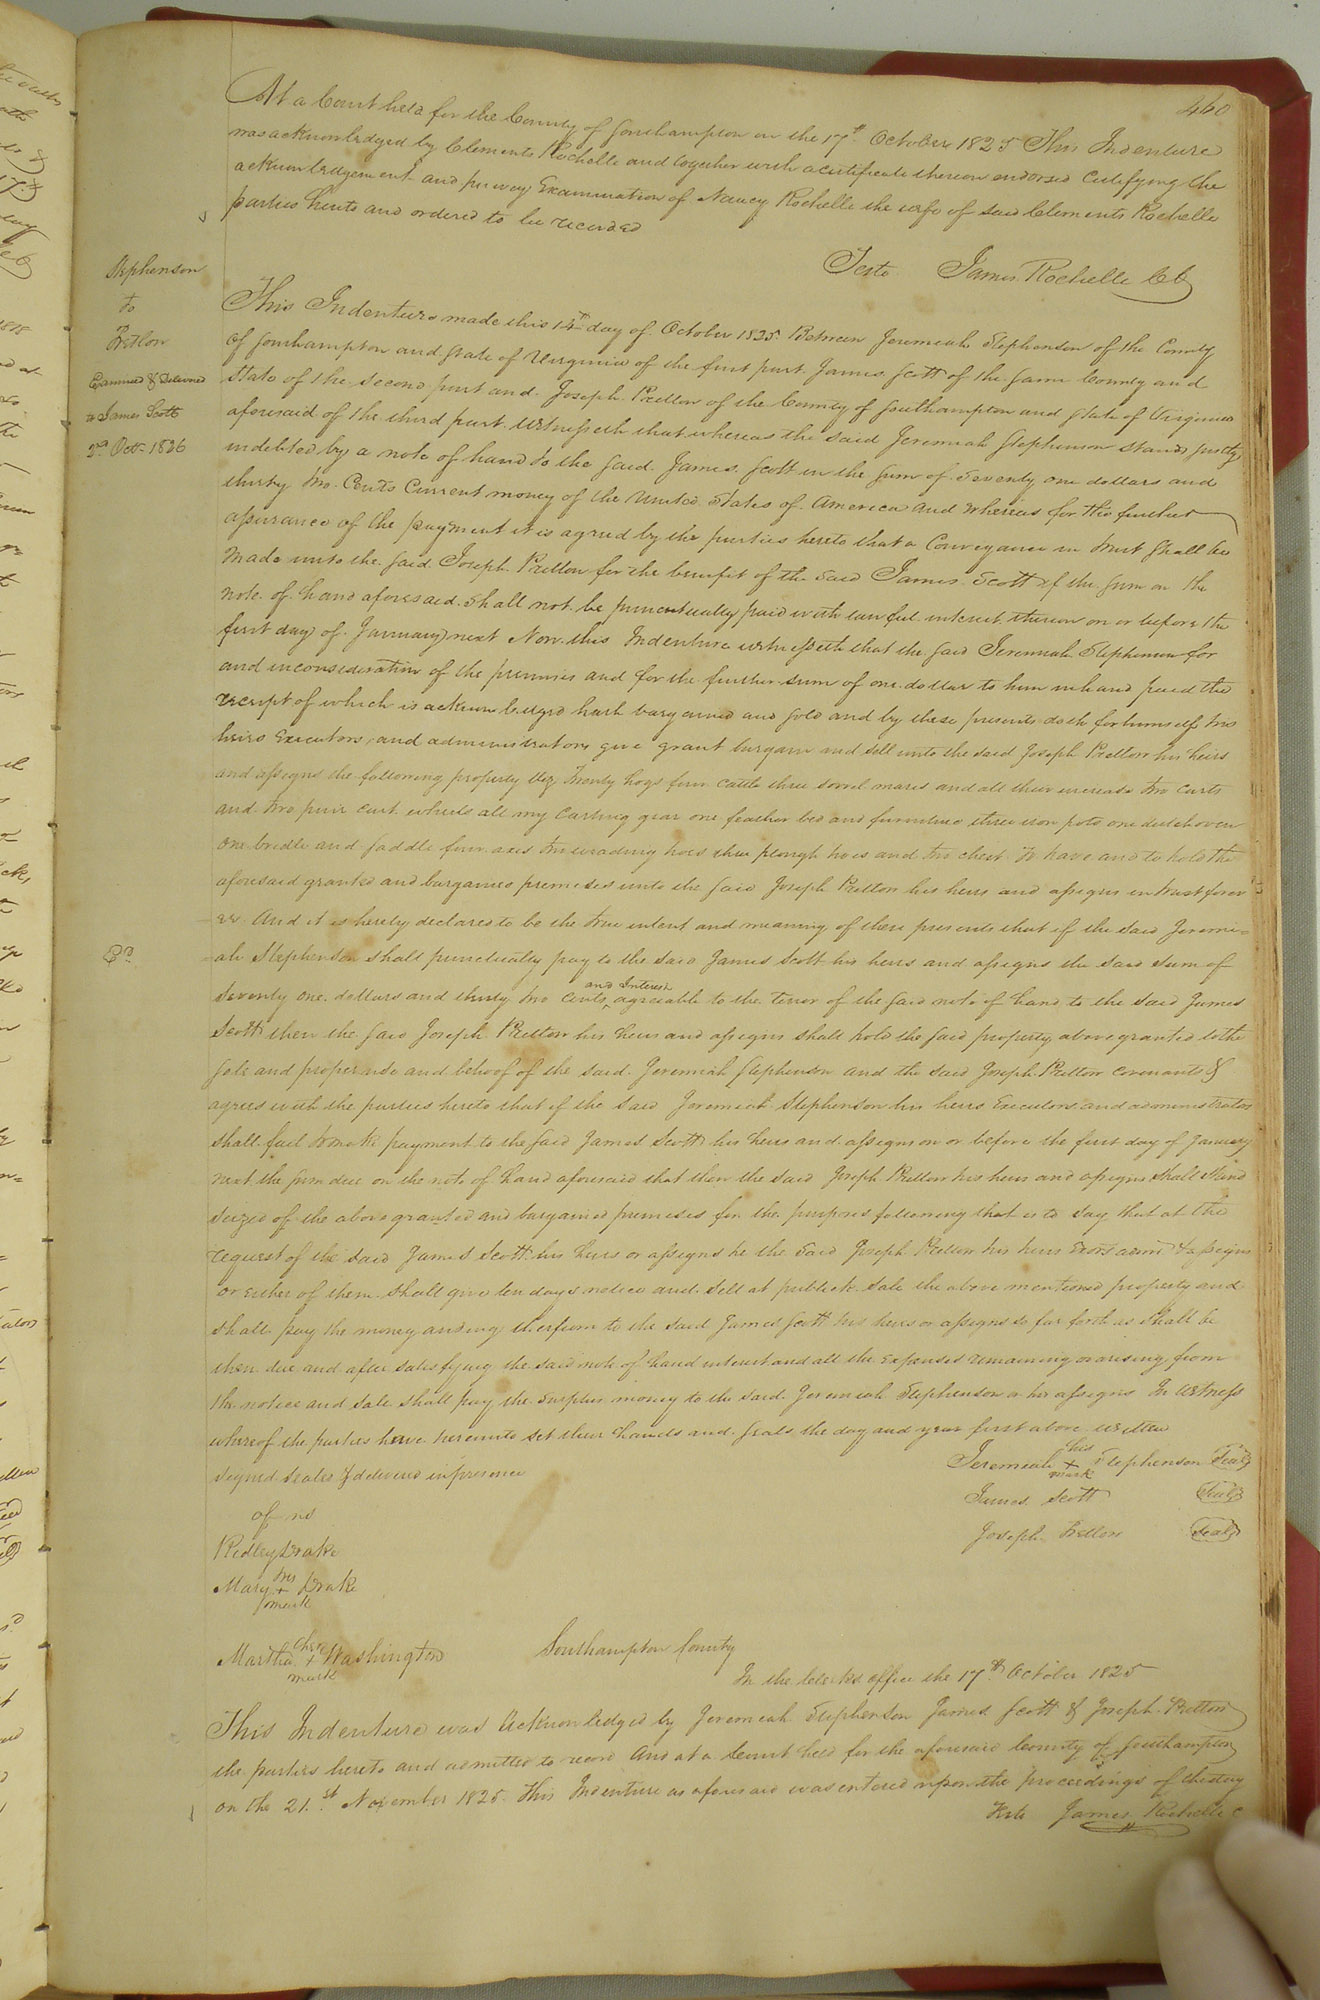 460
At a Court held for the County of Southampton on the 17th October 1825 This Indenture
was acknowledged by Clements Rochelle and together with a certificate thereon endorsed Certifying the
acknowledgement and privey Examination of Nancy Rochelle the wife of said Clements Rochelle
parties hereto and ordered to be recorded
Teste James Rochelle CC
Stephenson
to
Pretlow
Examined & Delivered
to James Scott
2nd Octr 1826
This Indenture made this 14th day of October 1825 Between Jeremiah Stephenson of the County
of Southampton and State of Virginia of the first part James Scott of the Same County and
State of the second part and Joseph Pretlow of the County of Southampton and State of Virginia
aforesaid of the third part Witnesseth that whereas the said Jeremiah Stephenson stands justly
indebted by a note of hand to the Said James Scott in the Sum of Seventy one dollars and
thirty two Cents Current money of the United States of America and Whereas for the further
assurance of the payment it is agreed by the parties hereto that a Conveyance in trust Shall be
Made unto the Said Joseph Pretlow for the benefit of the Said James Scott if the Sum on the
note of hand aforesaid Shall not be punctually paid with lawful interest thereon on or before the
first day of January next Now this Indenture witnesseth that the Said Jeremiah Stephenson for
and inconsideration of the premises and for the further sum of one dollar to him in hand paid the
receipt of which is acknowledged hath bargained and sold and by these presents doth for himself his
heirs Executors and administrators give grant bargain and sell unto the said Joseph Pretlow his heirs
and assigns the following property Viz Twenty hogs four cattle three sorrel mares and all their increase two carts
and two pair cart wheels all my Carting gear one feather bed and furniture three iron pots one dutch oven
one bridle and saddle four axes two weeding hoes three plough hoes and two chest To have and to hold the
aforesaid granted and bargained premises unto the Said Joseph Pretlow his heirs and assigns in trust forev
er And it is hereby declared to be the true intent and meaning of these presents that if the said Jeremi=
=ah Stephenson shall punctually pay to the said James Scott his heirs and assigns the said Sum of
and Interest
Seventy one dollars and thirty two cents agreeable to the tenor of the Said note of hand to the said James
Scott then the Said Joseph Pretlow his heirs and assigns shall hold the Said property above granted to the
Sole and proper use and behoof of the said Jeremiah Stephenson and the said Joseph Pretlow covenants &
agrees with the parties hereto that if the Said Jeremiah Stephenson his heirs Executors and administrators
shall fail to make payment to the Said James Scott his heirs and assigns on or before the first day of January
next the Sum due on the note of hand aforesaid that then the said Joseph Pretlow his heirs and assigns Shall Stand
Seized of the above granted and bargained premises for the purposes following that is to say that at the
request of the Said James Scott his heirs or assigns he the Said Joseph Pretlow his heirs Exors admr & assigns
or either of them shall give ten days notice and Sell at publick sale the above mentioned property and
shall pay the money arising therefrom to the said James Scott his heirs or assigns so far forth as shall be
then due and after satisfying the said note of hand interest and all the expenses remaining or arising from
the notice and sale shall pay the surplus money to the said Jeremiah Stephenson or his assigns In Witness
whereof the parties have hereunto set their hands and Seals the day and year first above written
Signed Sealed & delivered in presence
of us
his
Jeremiah + Stephenson Seal
mark
James Scott Seal
Joseph Pretlow Seal
Ridley Drake
her
Mary + Drake
mark
her
Martha + Washington
mark
Southampton County
In the Clerks office the 17th October 1825
This Indenture was Acknowledged by Jeremiah Stephenson James Scott & Joseph Pretlow
the parties hereto and admitted to record And at a Court held for the aforesaid County of Southampton
on the 21st November 1825 This Indenture as aforesaid was entered upon the proceedings of the day
Teste James Rochelle C